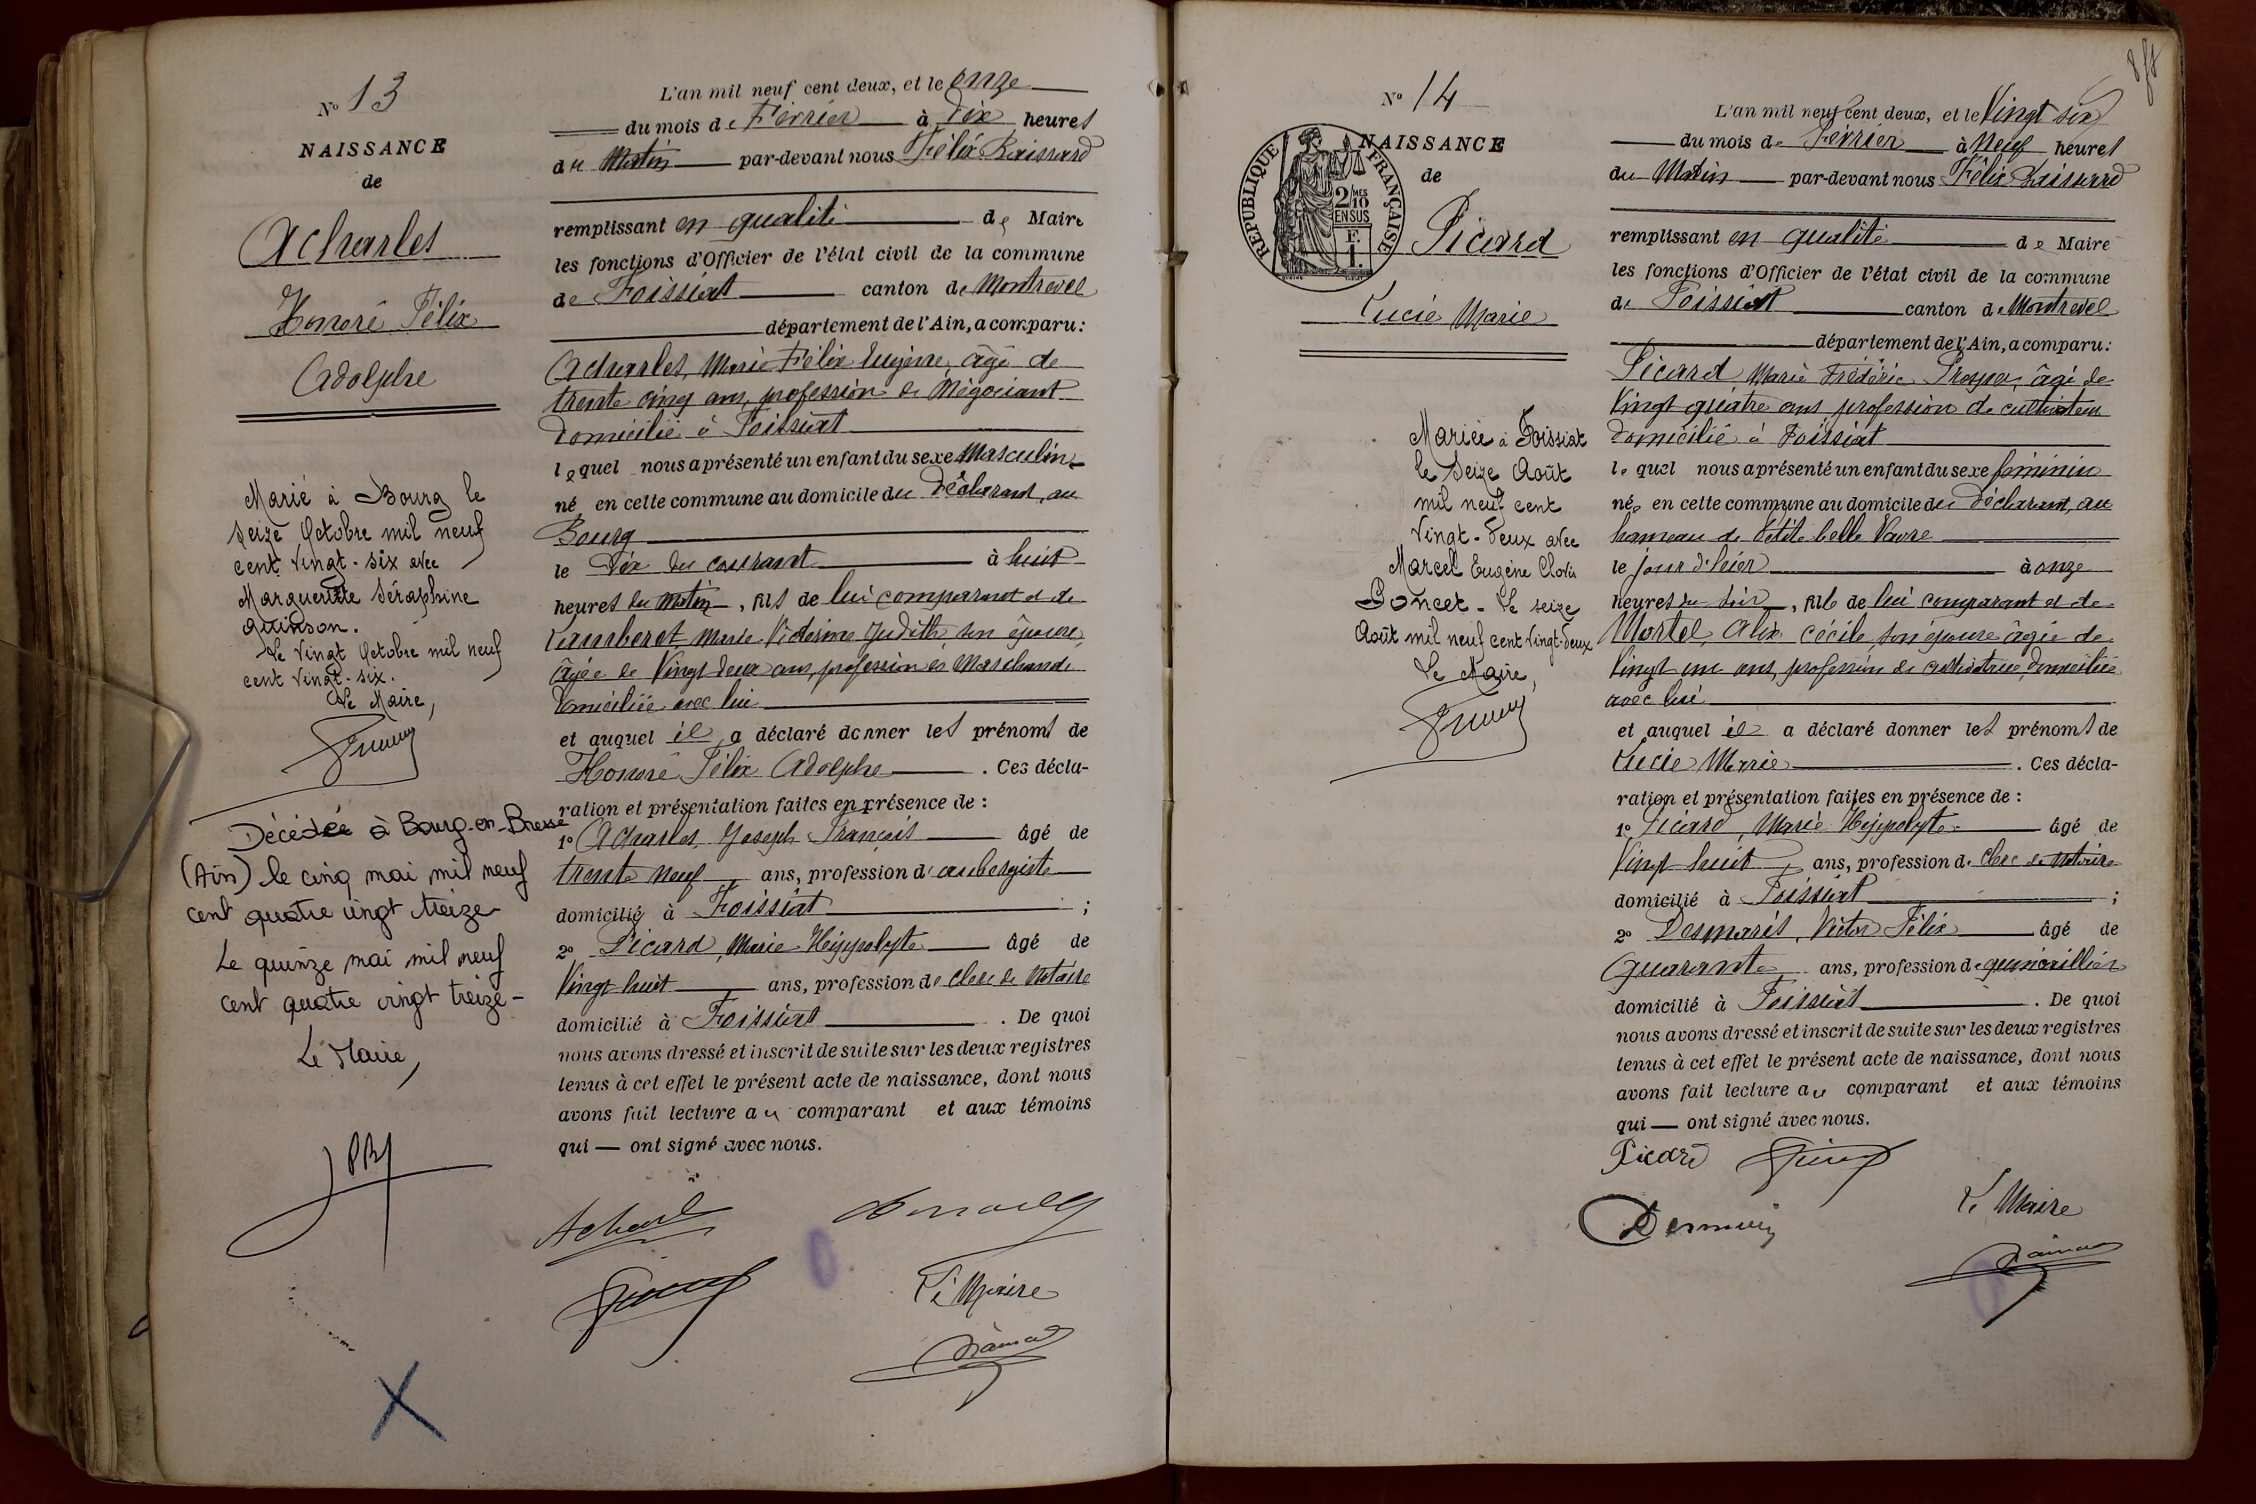 No 13
NAISSANCE
de
Acharles
Honoré Félix
Adolphe
Marié à Bourg le
seize Octobre mil neuf
cent vingt-six avec
Marguerite Séraphine
Quinson.
Le vingt Octobre mil neuf
cent vingt-six.
Le Maire,
Décédée à Bourg-en-Bresse
(Ain) le cinq mai mil neuf
cent quatre vingt treize
Le quinze mai mil neuf
cent quatre vingt treize -
Le Maire,
L'an mil neuf cent deux, et le onze
du mois de Février à Dix heures
du Matin par-devant nous Félix Raissard
remplissant en qualité de Maire
les fonctions d'Officier de l'état civil de la commune
de Foissiat canton de Montrevel
département de l'Ain, a comparu :
Acharles, Marie Félix Eugène, âgé de
trente cinq ans, profession de Négociant
domicilié à Foissiat
lequel nous a présenté un enfant du sexe Masculin
né en cette commune au domicile du Déclarant, au
Bourg
le Dix du courant à huit
heures du matin, fils de lui comparant et de
Marie Victorine Judith son épouse,
âgée de Vingt deux ans, profession de Marchande
domiciliée avec lui
et auquel il a déclaré donner les prénoms de
Honoré Félix Adolphe . Ces décla-
ration et présentation faites en présence de :
1o Acharles Joseph François âgé de
trente neuf ans, profession d'aubergiste
domicilié à Foissiat ;
2o Picard, Marie Hippolyte âgé de
Vingt huit ans, profession de clerc de Notaire
domicilié à Foissiat . De quoi
nous avons dressé et inscrit de suite sur les deux registres
tenus à cet effet le présent acte de naissance, dont nous
avons fait lecture au comparant et aux témoins
qui — ont signé avec nous.
Le Maire
No 14
NAISSANCE
de
RÉPUBLIQUE FRANÇAISE
2/10 MES
EN SUS
F.
1.
Picard
Lucie Marie
Mariée à Foissiat
le Seize Août
mil neuf cent
Vingt-Deux avec
Marcel Eugène Clovis
Poncet - Le seize
Août mil neuf cent vingt-deux
Le Maire,
L'an mil neuf cent deux, et le Vingt six
du mois de Février à Neuf heures
du Matin par-devant nous Félix Raissard
remplissant en qualité de Maire
les fonctions d'Officier de l'état civil de la commune
de Foissiat canton de Montrevel
département de l'Ain, a comparu :
Picard Marie Frédéric Prosper, âgé de
Vingt quatre ans profession de cultivateur
domicilié à Foissiat
lequel nous a présenté un enfant du sexe féminin
née en cette commune au domicile du Déclarant, au
hameau de Petite belle Vavre
le jour d'hier à onze
heures du soir, fille de lui comparant et de
Martel Alix Cécile, son épouse âgée de
Vingt un ans, profession de cultivatrice domiciliée
avec lui
et auquel il a déclaré donner les prénoms de
Lucie Marie . Ces décla-
ration et présentation faites en présence de :
1o Picard, Marie Hippolyte âgé de
Vingt huit ans, profession de clerc de Notaire
domicilié à Foissiat ;
2o Desmaris, Victor Félix âgé de
Quarante ans, profession de quincaillier
domicilié à Foissiat . De quoi
nous avons dressé et inscrit de suite sur les deux registres
tenus à cet effet le présent acte de naissance, dont nous
avons fait lecture au comparant et aux témoins
qui — ont signé avec nous.
Picard
Le Maire